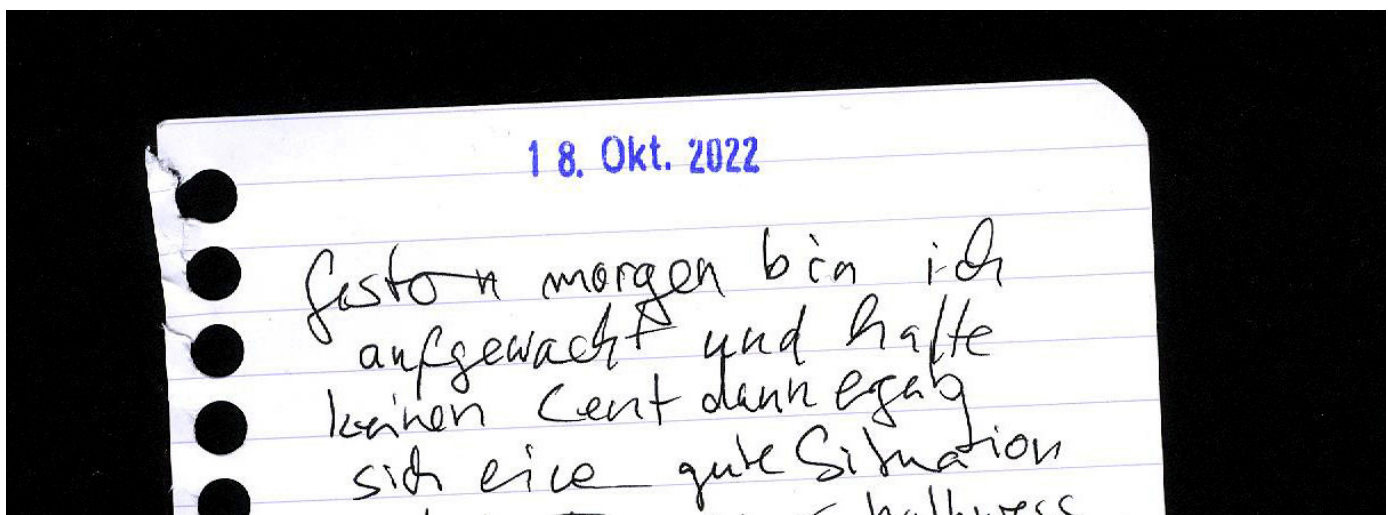 18. Okt. 2022
Gestern morgen bin ich
aufgewacht und hatte
keinen Cent dann ergab
sich eine gute Situation